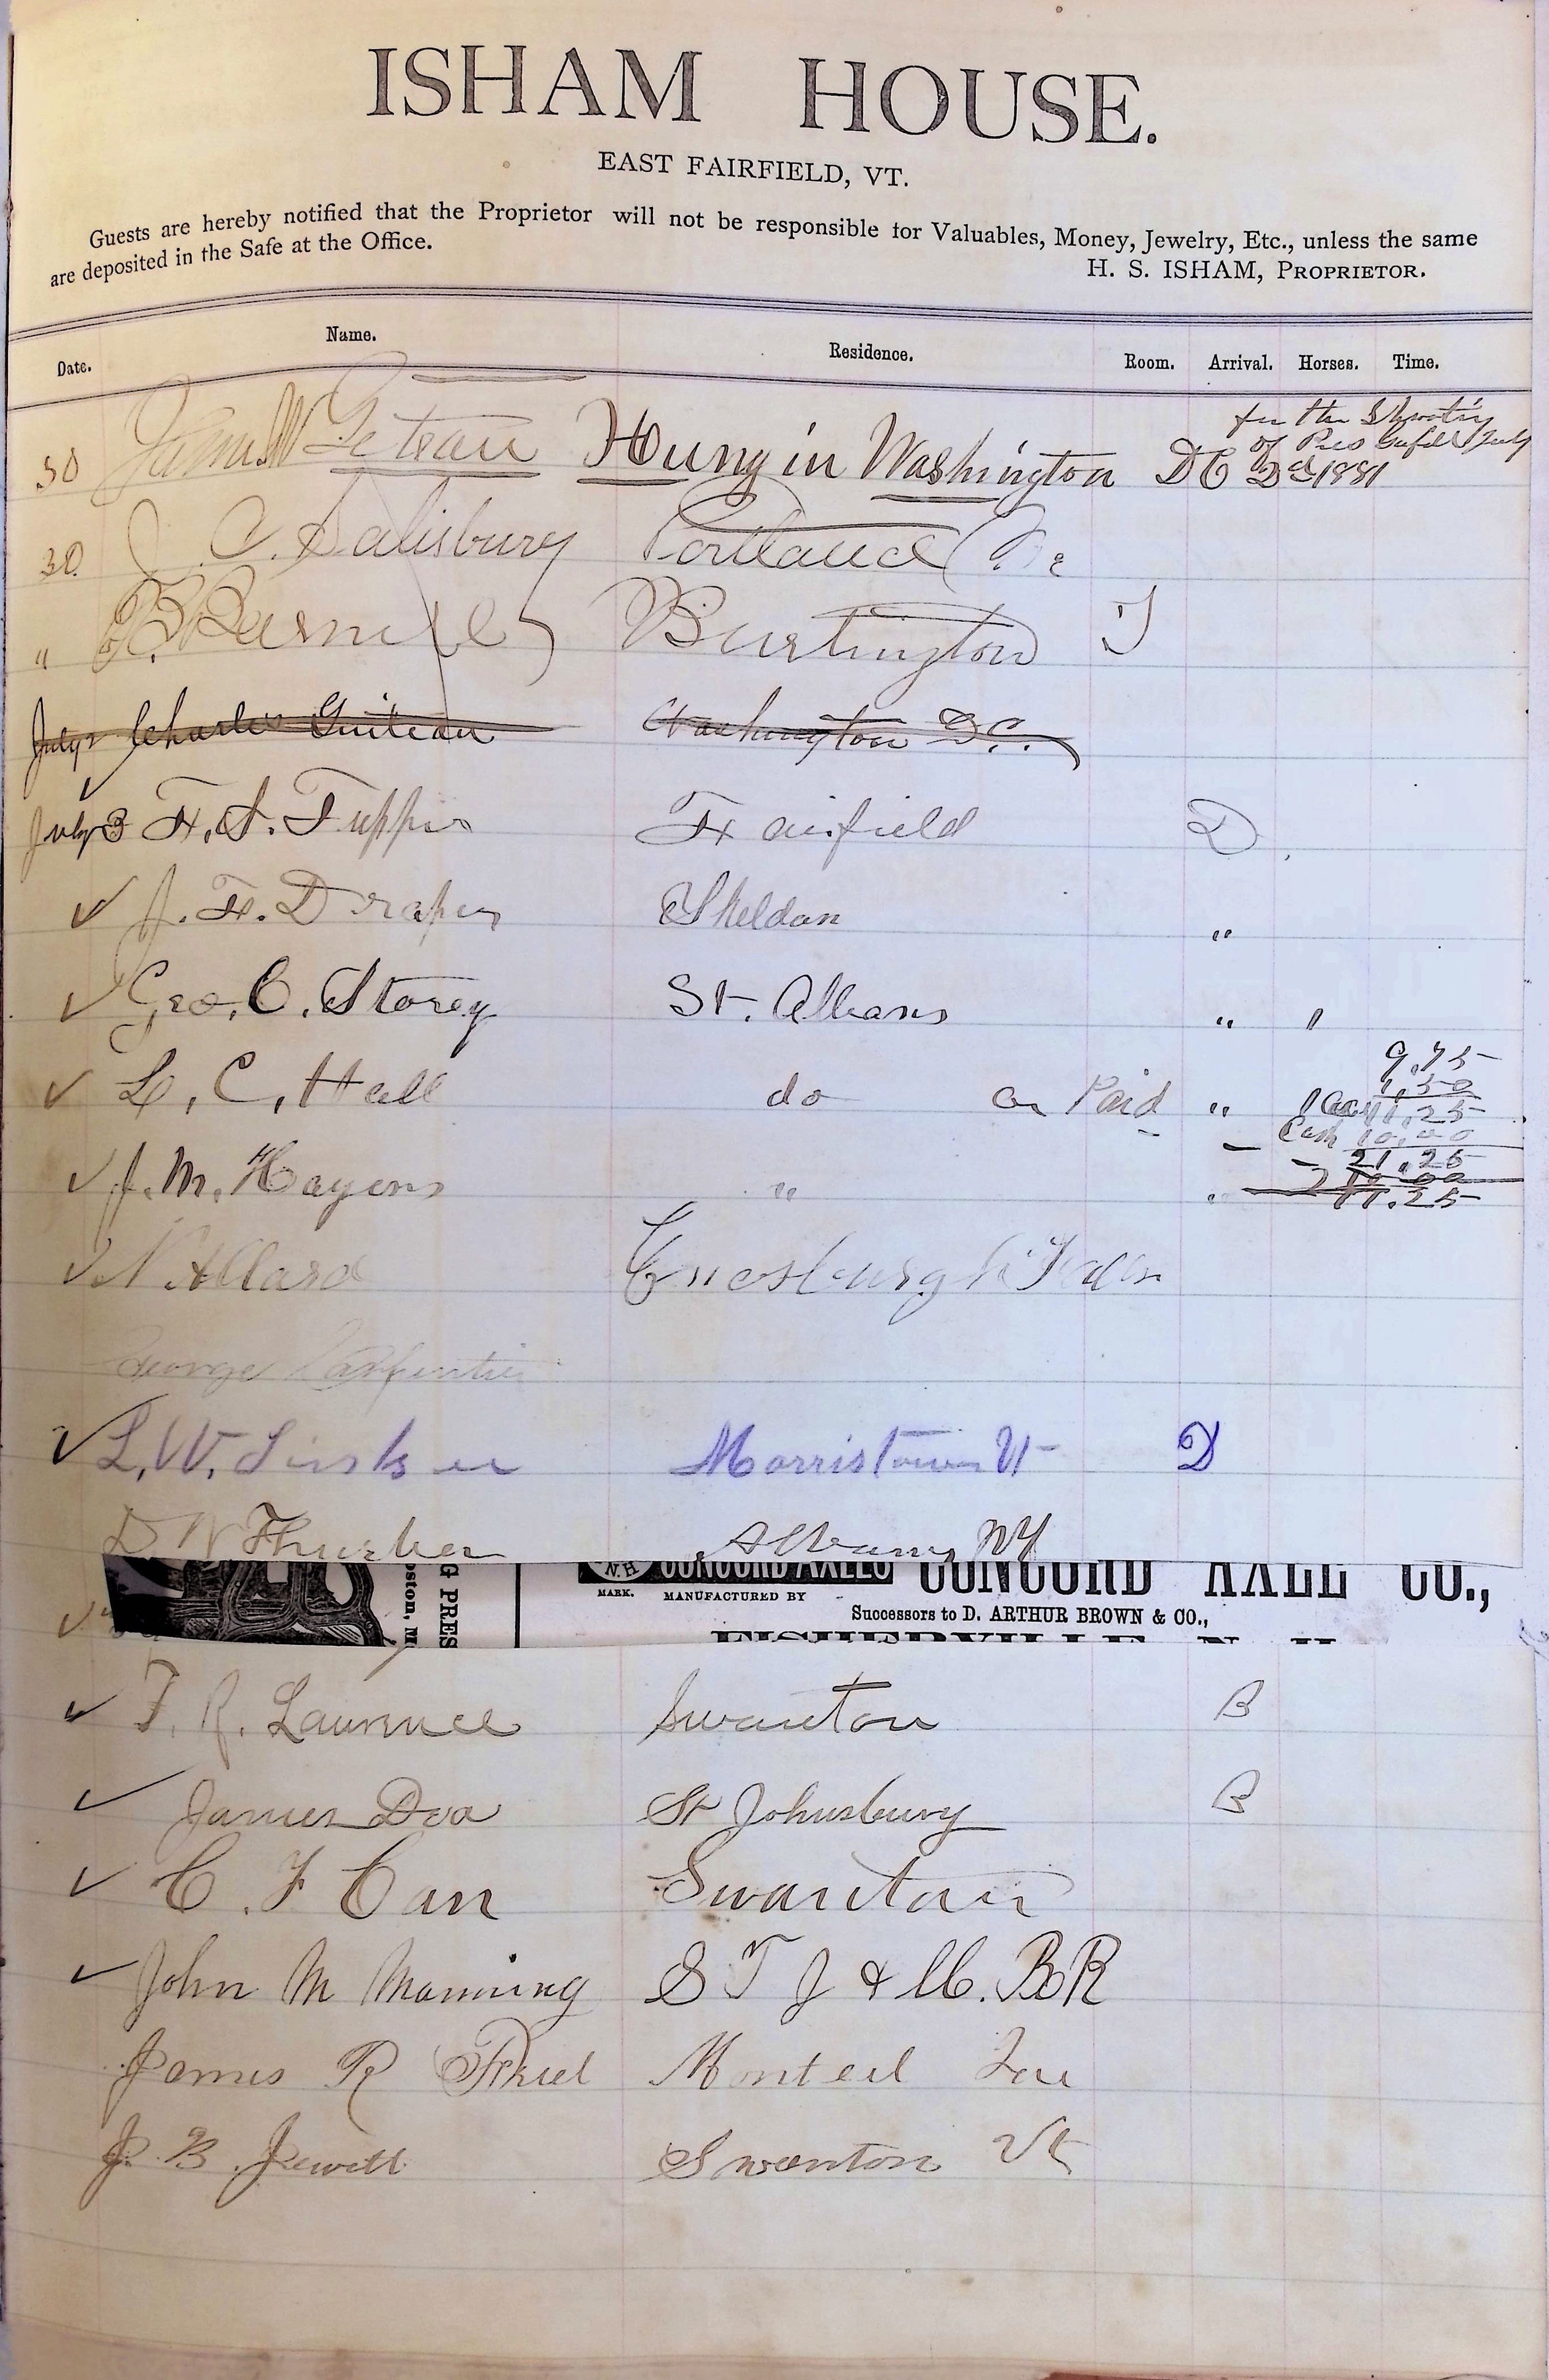 ISHAM HOUSE.
EAST FAIRFIELD, VT.
Guests are hereby notified that the Proprietor will not be responsible for Valuables, Money, Jewelry, Etc., unless the same
are deposited in the Safe at the Office.
H. S. ISHAM, PROPRIETOR.
Date. Name. Residence. Room. Arrival. Horses. Time.
for the Shooting
of Pres July
30 Hung in Washington DC 1881
30. J. C. Salisbury Portland Me
" Burlington
July 2 Charles Guiteau Washington D.C.
July 3 Fairfield D
J. F. Draper Sheldon "
Geo. C. Storey St. Albans " 1
9.75
1.50
L. C. Hall do Paid " 11.25
Cash 10.00
21.25
J. M. Hayens " " 10.00
11.25
N Allard Enosburgh Falls
George Carpentier
L. W. Morristown Vt D
D. W Thurber Albany NY
N.H CONCORD AXLES CONCORD AXLE CO.,
MARK. MANUFACTURED BY
Successors to D. ARTHUR BROWN & CO.,
FISHERVILLE, N. H.
G PRES
oston, M
F. R. Lawrence Swanton B
James Doa St Johnsbury B
C. F Carr Swanton
John M Manning S T J & L C. R R
James R Monteil
J. B. Jewett Swanton Vt